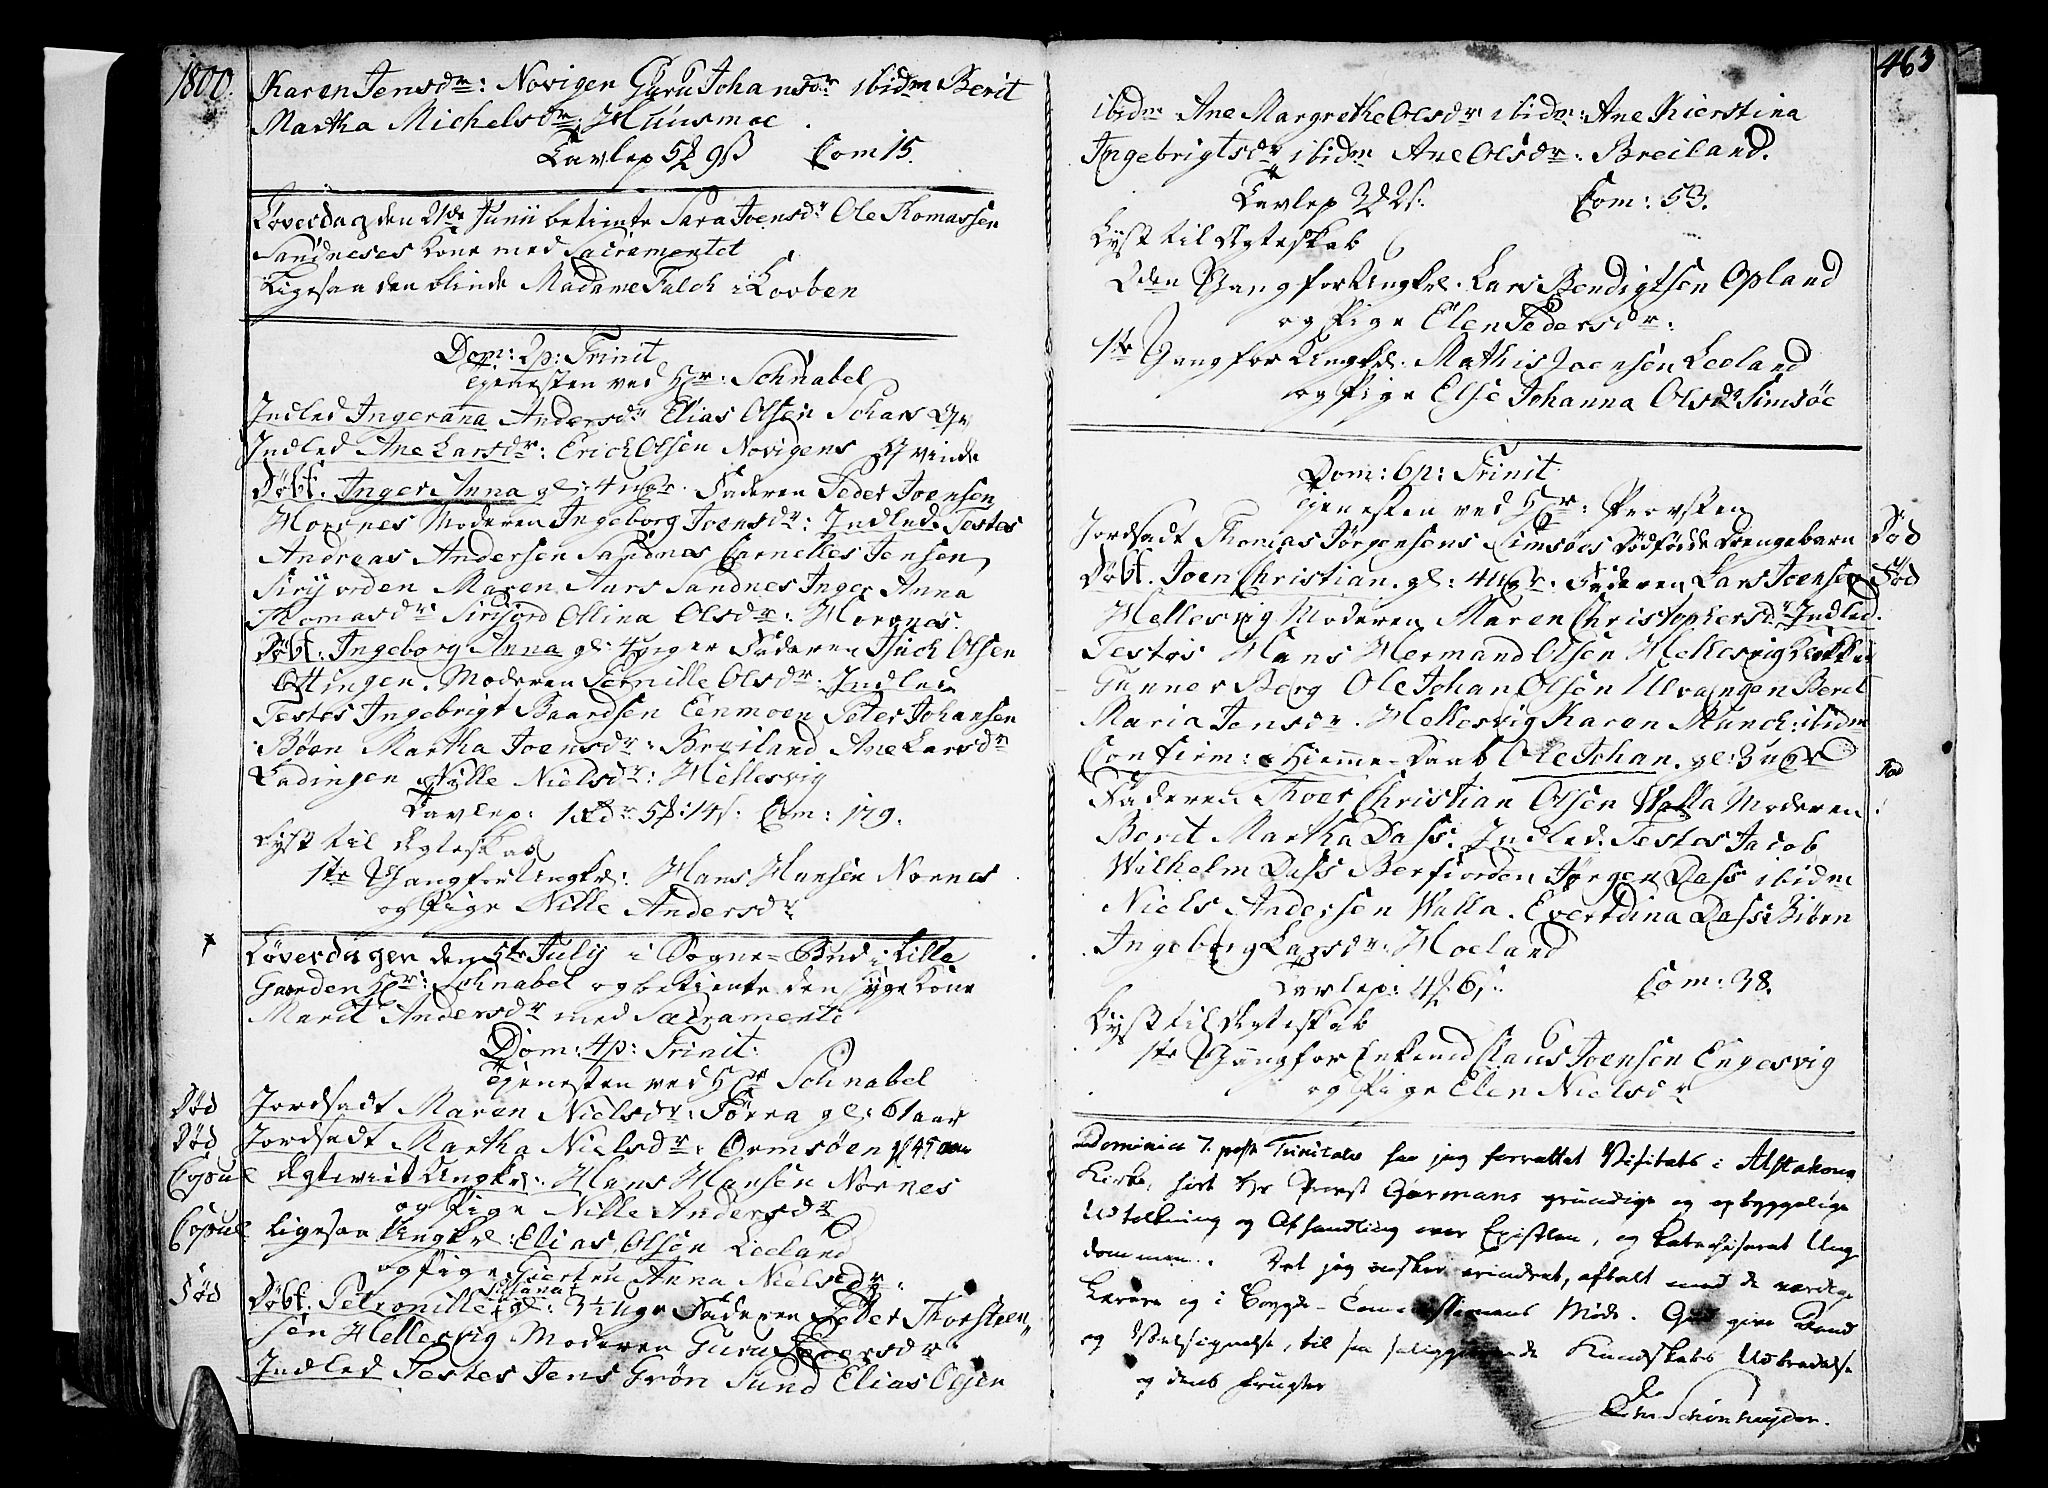 1800.
Karen Jensdr: Novigen Guru Johansdr ibidm Berit
Martha Michelsdr: Huusmoe
Tavlep 5 9ß Com 15.
Löverdag den 21de Junii betiente Sara Joensdr Ole Thomassen
Sandneses Kone med Sacramentet
Ligesaa den blinde Madame Falch i Lovben
Dom: 2p: Trinit
Tjenesten ved Hr: Schnabel
Indled Ingeranna Andersdr Elias Olsen Schars Qv
Indled Ane Larsdr: Erich Olsen Novigens Qvinde
Döbt. Inger Anna gl: 4 uger. Faderen Peder Joensen
Hornes Moderen Ingeborg Joensdr: Indled. Testes
Andreas Andersen Sandnes Cornelles Jensen
Sirijorden Maren Aars Sandnes Inger Anna
Thomasdr Sirijord Ollina Olsdr: Hornes.
Döbt. Ingeborg Anna gl: 4 uger Faderen Isach Olsen
Ottingen. Moderen Pernille Olsdr. Indled
Testes Ingebrigt Baardsen Eenmoen Peter Johansen
Böen Martha Joensdr: Breiland Ane Larsdr
Ladingen Nille Nielsdr: Hellesvig
Tavlep: 1Rdr 5 : 14s: Com: 179.
Lyst til Ægteskab
1ste Gang for Ungkl: Hans Hansen Nornes
og Pige Nille Andersdr
Löverdagen den 5te July i Sogne-Bud i Lille
Gaarden Hr: Schnabel og betiente den syge Kone
Marit Andersdr med Sacramente
Dom: 4p: Trinit:
Tjenesten ved Hr Schnabel
Död Jordsadt Maren Nielsdr: Törra gl: 61 aar
Död Jordsadt Martha Nielsdr: Ormsöen gl 45 aar
Copul Ægteviet Ungkl: Hans Hansen Nornes
og Pige Nille Andersdr
Copul Ligesaa Ungkl: Elias Olsen Leeland
og Pige Giertru Anna Nielsdr:
Födt Döbt. Petronille Susana gl: 3½ Uge Faderen Peder Thorsteen„
sen Hellesvig Moderen Guru Pedersdr.
Indled Testes Jens Grön Sund Elias Olsen
463
ibidm Ane Margrethe Olsdr ibidm: Ane Kierstina
Ingebrigtsdr ibidm Ane Olsdr: Breiland.
Tavlep 3 2s. Com: 53.
Lyst til Ægteskab
2den Gang for Ungkl. Lars Bendigtsen Opland
og Pige Elen Pedersdr:
1ste Gang for Ungkl. Mathis Joensen Leeland
og Pige Else Johanna Olsdr Simsöe
Dom: 6p: Trinit
Tjenesten ved Hr: Provsten
Jordsadt Thomas Jörgensens Simsöes Dödfödde Drengebarn Död
Döbt. Joen Christian. gl: 4 uger: Faderen Lars Joensen Föd
Hellesvig Moderen Maren Christophersdr Indled.
Testes Hans Hermand Olsen Hellesvig
Gunner Berg Ole Johan Olsen Ulvangen Berit
Maria Jensdr. Hellesvig Karen Munch: ibidm
Confirm: Hiemme-Daab Ole Johan. gl: 3 uger Föd
Faderen Thoer Christian Olsen Walla Moderen
Berit Martha Dass. Indled. Testes Jacob
Wilhelm Dass Berfiorden Jörgen Dass ibidm
Niels Andersen Walla. Evertdina Dass Biörn
Ingeborg Larsdr: Moeland
Tavlep: 4 6s. Com: 38.
Lyst til Ægteskab
1ste Gang for Enkemd Claus Joensen Engesvig
og Pige Elen Nielsdr
Dominica 7. post Trinitatis har jeg forrettet Visitats i Alstahoug
Kirke, hört Hr Provst Gormans grundige og opbyggelige
Udtolkning og Afhandling over Epistlen, og katechiseret Ung
dommen. Det jeg önsker erindret, aftalt med de værdige
Lærere og i Bøygde-Commissionens Möde. Gud give Vand
og Velsignelse, til saa saliggiörende Kundskabs Udbredelse
og dens Frugter
Chr Schönheyder.